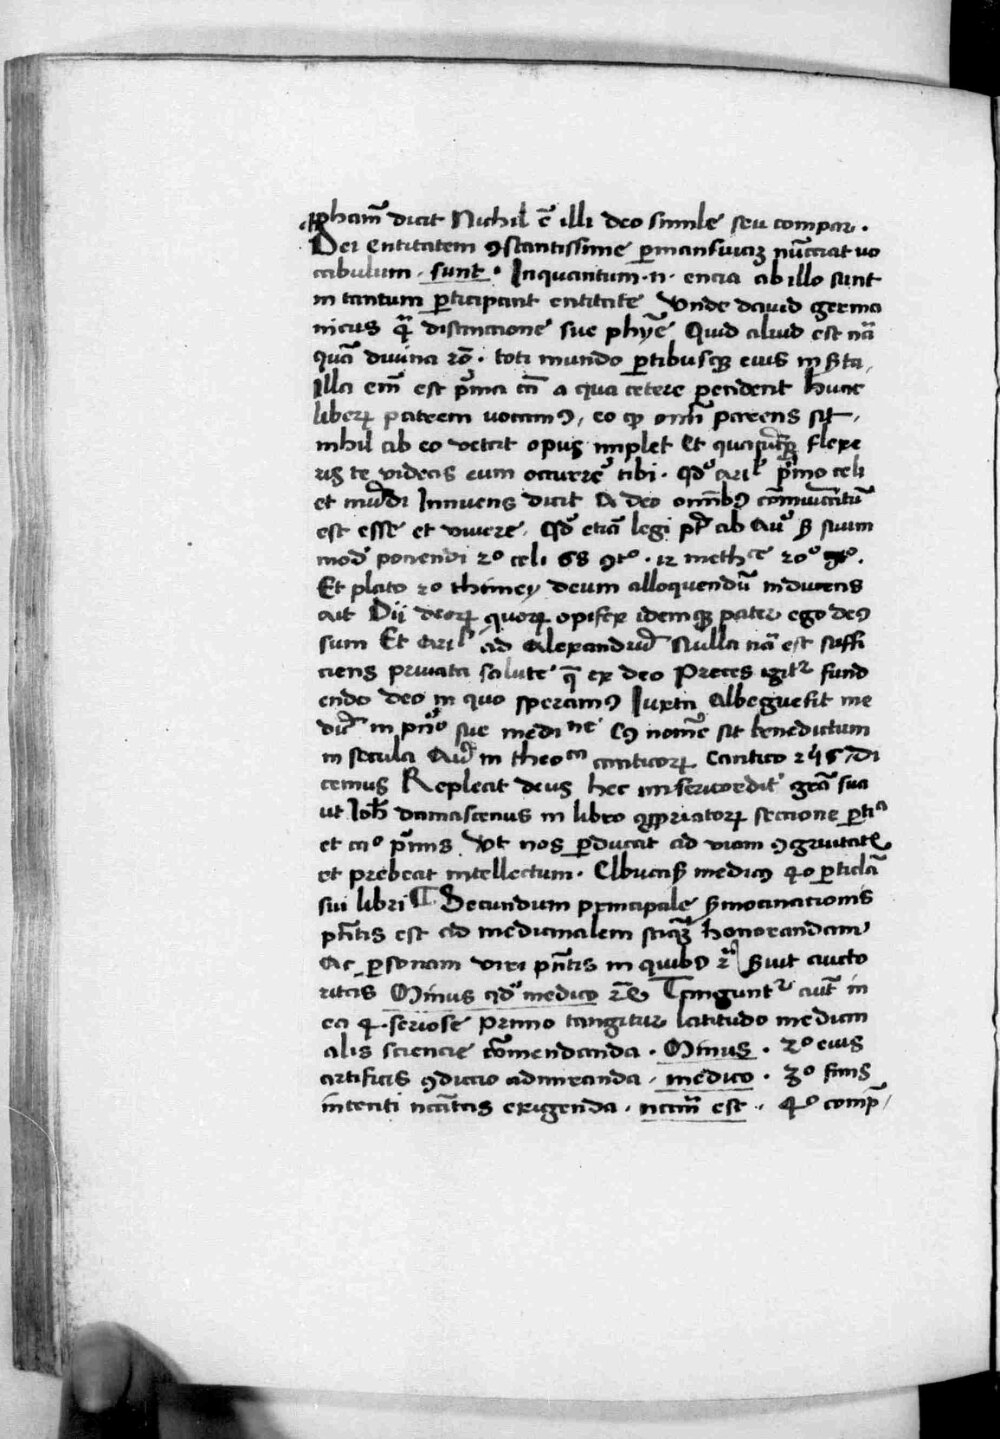 phanū dicit Nichil ē illi deo simile seu compar.
Dei entitatem ꝯstantissime ꝑmansuꝛā nūcciat uo
cabulum. sunt. Inquantum .n. encia ab illo sunt
in tantum ꝑticipant entitate Unde dauid germa
nicus distinctione sue phye Quid aliud est nā
quā diuina rō. toti mundo ꝑtibusqꝫ eius inserta,
Illa em̄ est pͥma cā a qua cetere pendent Hunc
liberꝝ patrem uocamꝰ, eo ꝙ om̄ parens sit,
nihil ab eo vacat opus implet Et flexe
ris te videas eum occurrere tibi. Qdͦ aril pͥmo celi
et mūdi Innuens dicit A deo om̄ibꝰ cōmuicatū
est esse et viuere, Qdͦ etiā legi pt̄ ab Auͦ ẜ suum
modū ponendi 2º celi 68 ꝯtº. 12 methce 20º
Et plato 2o thimey deum alloquendū inducens
ait Dij deorꝝ quorꝝ opifex idemqꝫ pater ego deꝰ
sum Et aril ad Alexandrū Nulla nā est suffi
ciens priuata salute q̄ ex deo Preces igitᷣ fund
endo deo in quo speramꝰ Iuxta Albeguefit me
dicū in pnͦ sue medine Cꝰ nomē sit benedictum
in secula Auͦ in theoca canticorꝝ cantico di
cemus Repleat deus hec misericordit grā sua
ut Joh̄ damascenus in libro ꝯpriatorꝝ sectione ꝑtia
et caº pͥmis. Ut nos ꝑducat ad viam ꝯgruitatꝭ
et prebeat intellectum. Elbucasẜ medicꝰ 4o ꝑticlā
sui libri ¶ Secundum principale ẜmocinationis
pn̄tis est ad medicinalem sciāqꝫ honorandam
Ac ꝑsonam viri pn̄tis in quibꝰ ẜuit aucto
ritas Minus qdͦ medico Tanguntᷣ aut̄ in
ea 4 seriose Primo tangitur latitudo medicin
alis sciencie cōmendanda. Minus. 2º eius
artificis ꝯdicio admiranda, medico. 3º finis
intenti nc̄tas exigenda. nam̄ est.. 4º comp̄